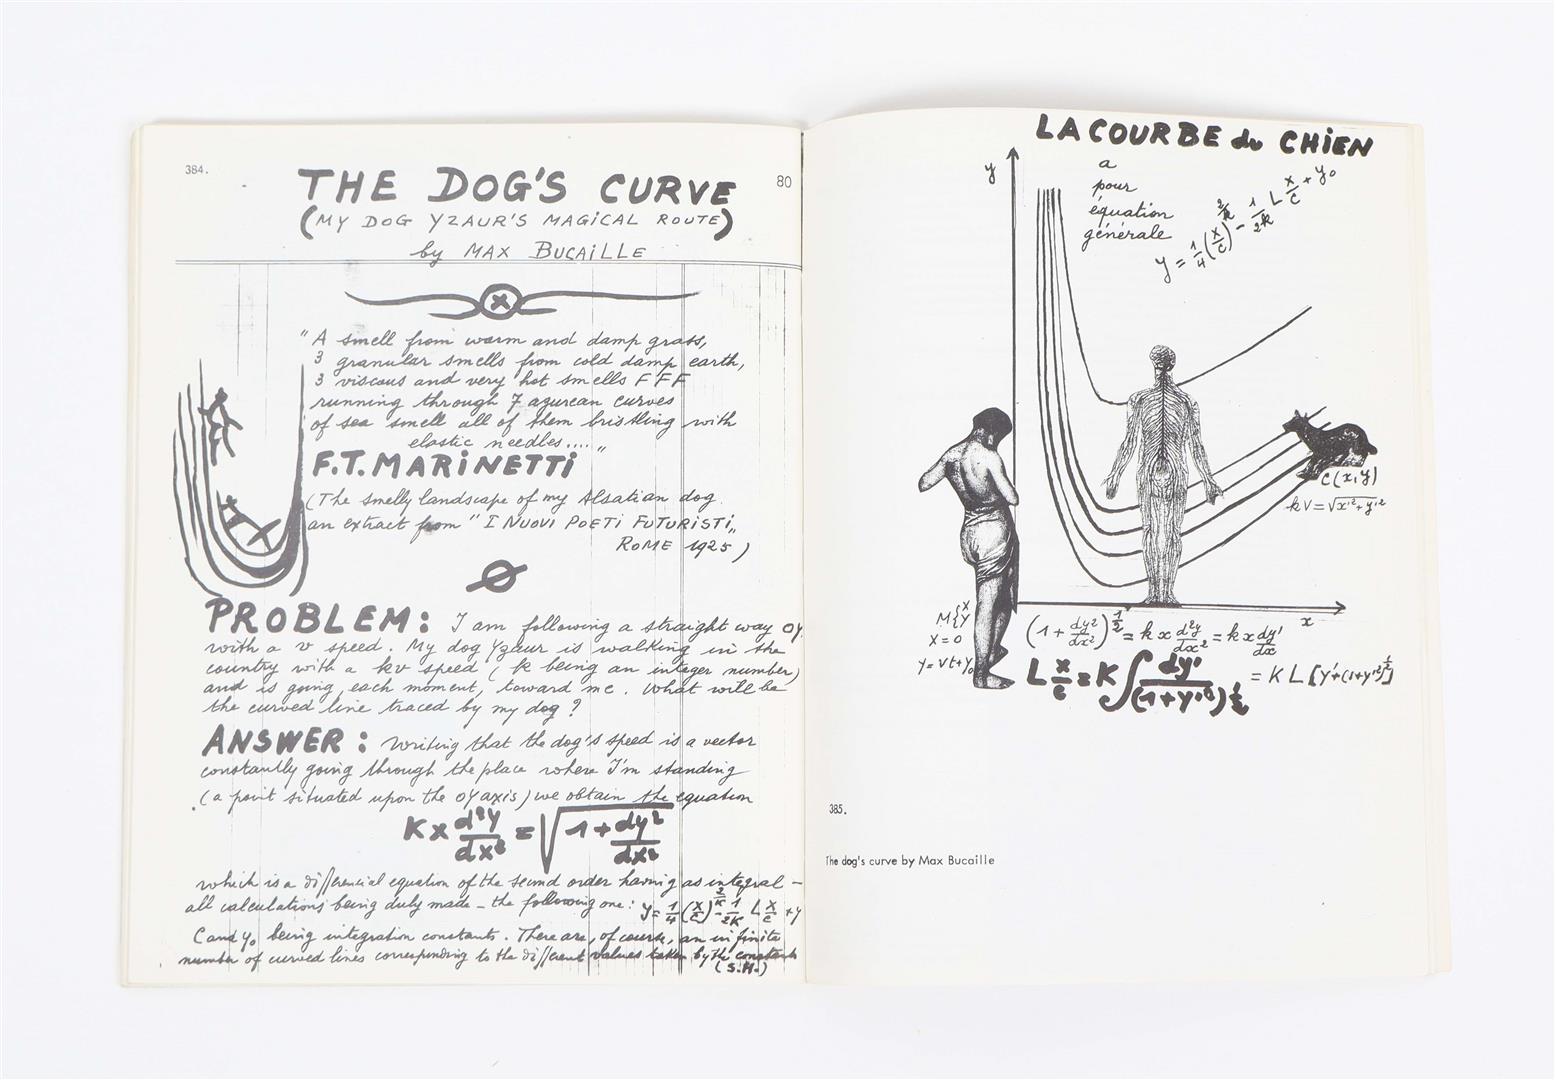 384.
THE DOG'S CURVE
80
(MY DOG YZAUR'S MAGICAL ROUTE)
by MAX BUCAILLE
x
"A smell from warm and damp grass,
3 granular smells from cold damp earth,
3 viscous and very hot smells FFF
running through 7 azurean curves
of sea smell all of them bristling with
elastic needles...."
F.T. MARINETTI
(The smelly landscape of my Alsatian dog
an extract from "I NUOVI POETI FUTURISTI,,
ROME 1925)
PROBLEM: I am following a straight way OY
with a v speed. My dog Yzaur is walking in the
country with a kv speed (k being an integer number)
and is going, each moment, toward me. What will be
the curved line traced by my dog?
ANSWER: Writing that the dog's speed is a vector
constantly going through the place where I'm standing
(a point situated upon the oy axis) we obtain the equation
K x d²y/dx² = √(1 + dy²/dx²)
which is a differential equation of the second order having as integral -
all calculations being duly made - the following one: y = 1/4 (x/c)^2/k - 1/2k L x/c + y
C and y₀ being integration constants. There are, of course, an infinite
number of curved lines corresponding to the different values taken by the constants
(S.H.)
LA COURBE du CHIEN
a
pour
équation
générale
y = 1/4 (x/c)^2/k - 1/2k L x/c + y₀
y
C (x, y)
kV = √x'² + y'²
M { x y
X = 0
Y = Vt + Y₀
x
(1 + dy²/dx²)^1/2 = k x d²y/dx² = k x dy'/dx
L x/c = K ∫ dy'/(1 + y'²)^1/2 = K L [y' + (1 + y'²)^1/2]
385.
The dog's curve by Max Bucaille